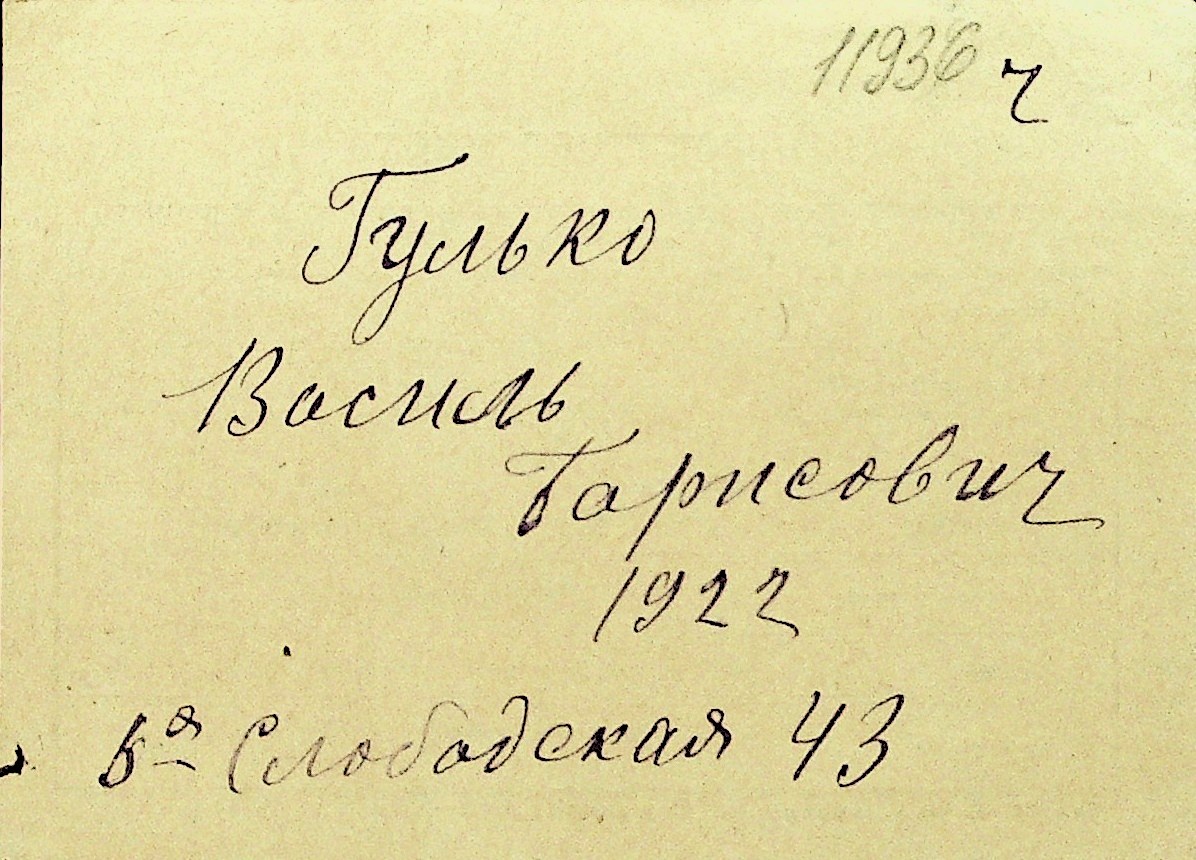 11936 ч
Гулько
Василь
Барисович
1922
Б-я Слободская 43